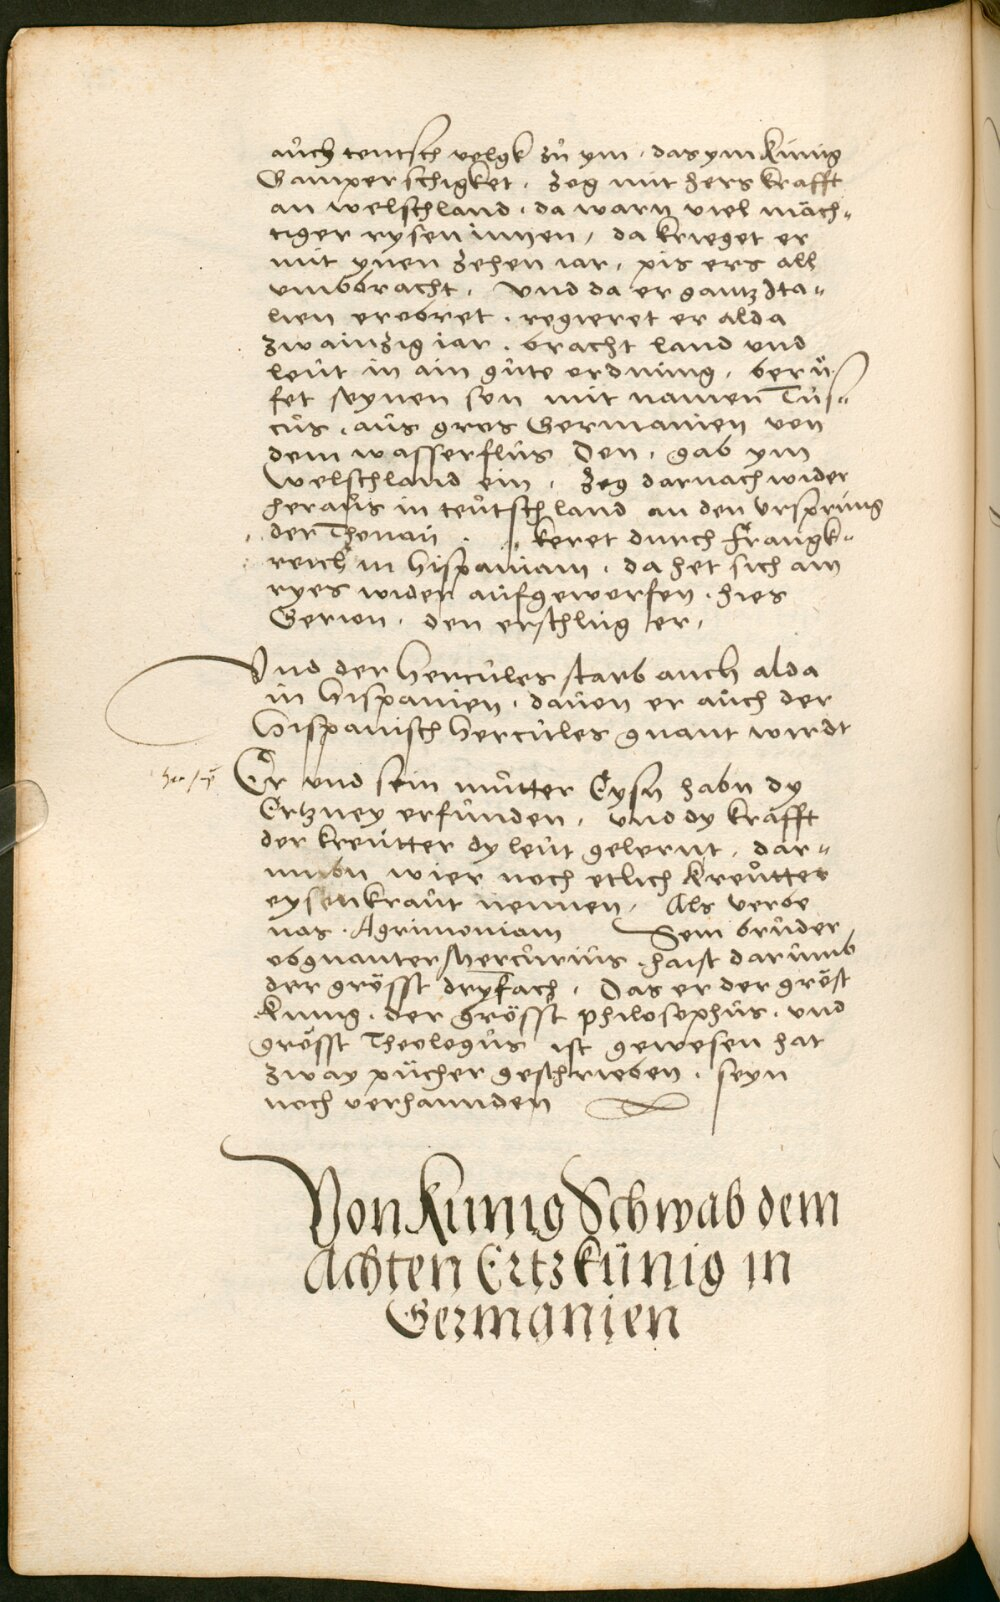 auch teutsch volgk zů ym, das ym Kunig
Gamper schigket, zog mit hers krafft
an welschland, da warn viel mäch-
tiger rysen innen, da krieget er
mit ynen zehen iar, pis ers all
umbbracht, Und da er gantz Ita-
lien erobret, regieret er alda
zwainzig iar, bracht land und
leüt in ain gůte ordnung, berů-
fet seynen son mit namen Tus-
cus, aus gros Germanien von
dem wasserflus Don, gab ym
Welschland ein, zog darnach wider
heraus in teutschland an den ursprung
der Thonau, keret durch Frangk-
reich in Hispaniam, da het sich ain
ryes wider aufgeworfen, hies
Gerion, den erschlug er,
Und der Hercules starb auch alda
in Hispanien, davon er auch der
Hispanisch Hercules gnant wirdt
Er und sein můtter Eysn habn dy
Ertzney erfunden, und dy kräfft
der kreütter dy leüt gelernt, dar-
umbn wier noch etlich kreütter
eysenkraut nennen, Als verbe
nas, Agrimoniam Sein brůder
obgnanter Mercurius, haist darumb
der grösst dryfach, Das er der gröst
Kunig, der grösst philosophus, und
grösst Theologus ist gewesen hat
zway pücher geschrieben, seyn
noch verhannden
Von Kunig Schwab dem
Achten Ertzkünig in
Germanien